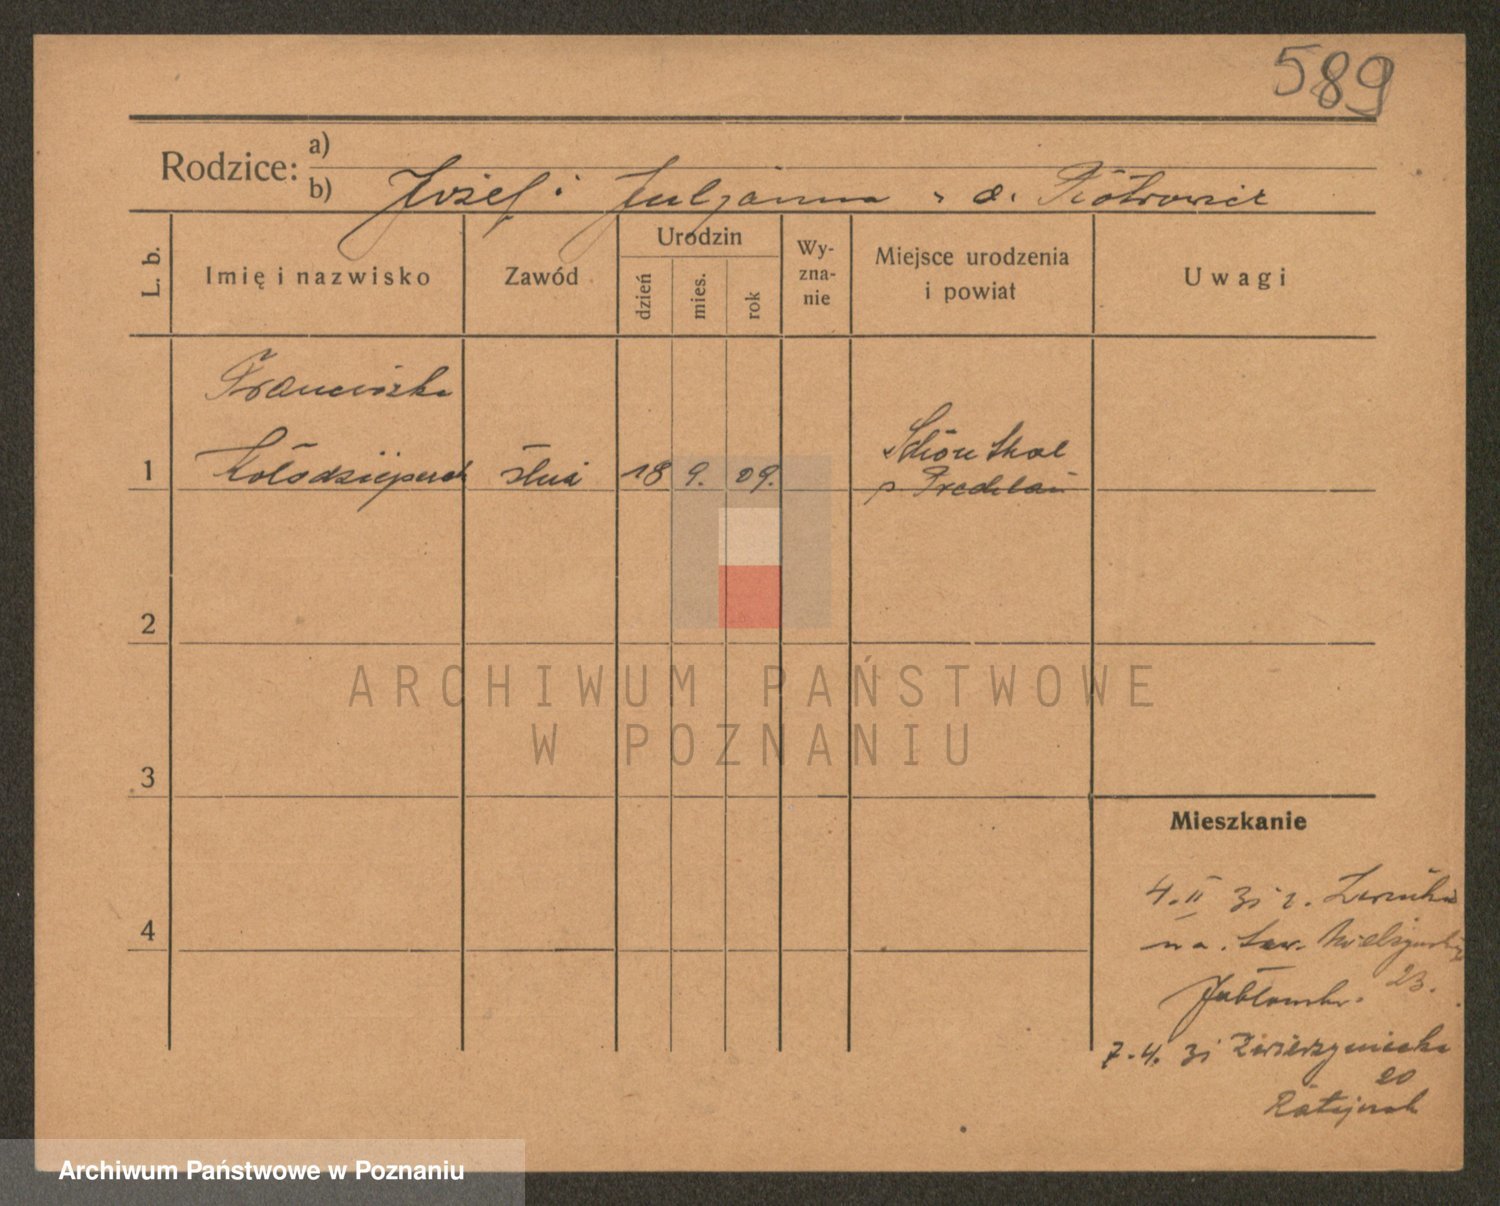 589
Rodzice: a)
b) Józef i Julianna z d. Piotrowicz
L. b.
Imię i nazwisko
Zawód
Urodzin
dzień
mies.
rok
Wy-
zna-
nie
Miejsce urodzenia
i powiat
Uwagi
Franciszka
1 Kołodziejczak służ 18 9. 09. Schön
p.
2
3
4
ARCHIWUM PAŃSTWOWE
W POZNANIU
Mieszkanie
4. II 31 z.
na
23.
7. 4. 31 Zwierzyniecka
20
Ratajczak
Archiwum Państwowe w Poznaniu